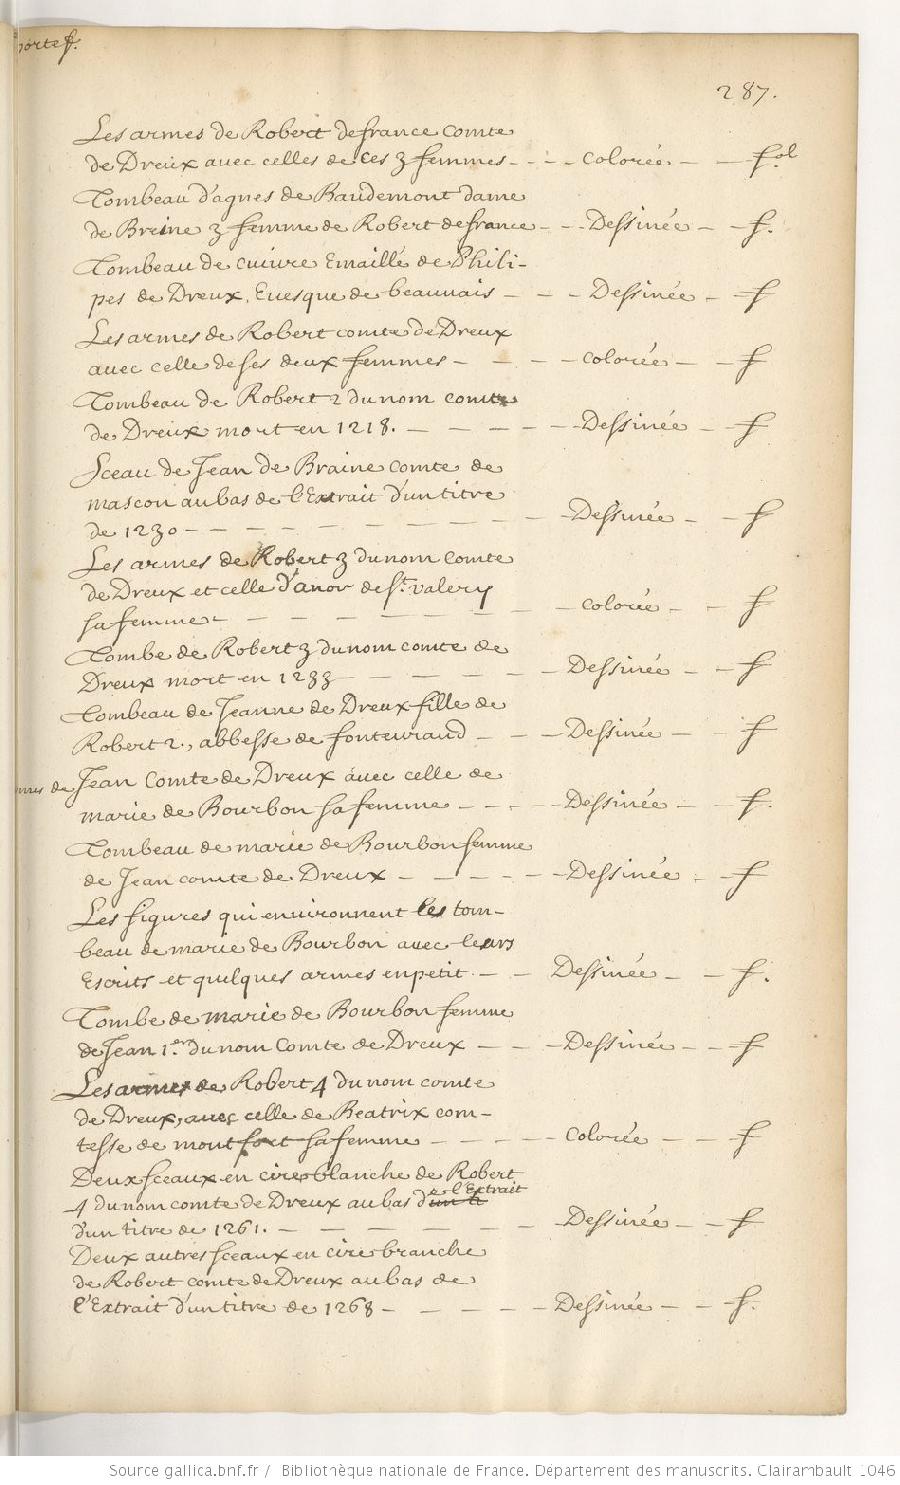 portef.
287.
Les armes de Robert de france comte
de Dreux avec celles de ces 3 femmes - - - colorée. - - fol
Tombeau d'agnes de Baudemont dame
de Breine 3 femme de Robert de france - - Dessinée - f.
Tombeau de cuivre Emaillé de Phili-
pes de Dreux, Evesque de beauvais - - - Dessinée - f
Les armes de Robert comte de Dreux
avec celle de ses deux femmes - - - - colorée - - f
Tombeau de Robert 2 du nom comte
de Dreux mort en 1218. - - - - - Dessinée - f
Sceau de Jean de Braine comte de
mascon au bas de l'Extrait d'un titre
de 1230 - - - - - - - - - Dessinée - f
Les armes de Robert 3 du nom comte
de Dreux et celle d'anor de St. valery
sa femme - - - - - - - - colorée - - f
Tombe de Robert 3 du nom comte de
Dreux mort en 1233 - - - - Dessinée - - f
Tombeau de Jeanne de Dreux fille de
Robert 2., abbesse de fontevraud - - - Dessinée - - f
mes de Jean Comte de Dreux avec celle de
marie de Bourbon sa femme - - - - Dessinée - - f.
Tombeau de marie de Bourbon femme
de Jean comte de Dreux - - - - - - Dessinée - - f
Les figures qui environnent les tom-
beau de marie de Bourbon avec leurs
Escrits et quelques armes en petit. - - Dessinée - - f.
Tombe de marie de Bourbon femme
de Jean 1.er du nom Comte de Dreux - - - Dessinée - - f
Les armes de Robert 4 du nom comte
de Dreux, avec celle de Beatrix com-
tesse de montfort sa femme - - - - - colorée - - f
Deux sceaux en cire blanche de Robert
4 du nom comte de Dreux au bas de l'Extrait
d'un titre de 1261. - - - - - - - Dessinée - - f
Deux autres sceaux en cire branche
de Robert comte de Dreux au bas de
l'Extrait d'un titre de 1268 - - - - - Dessinée - - f.
Source gallica.bnf.fr / Bibliothèque nationale de France. Département des manuscrits. Clairambault 1046